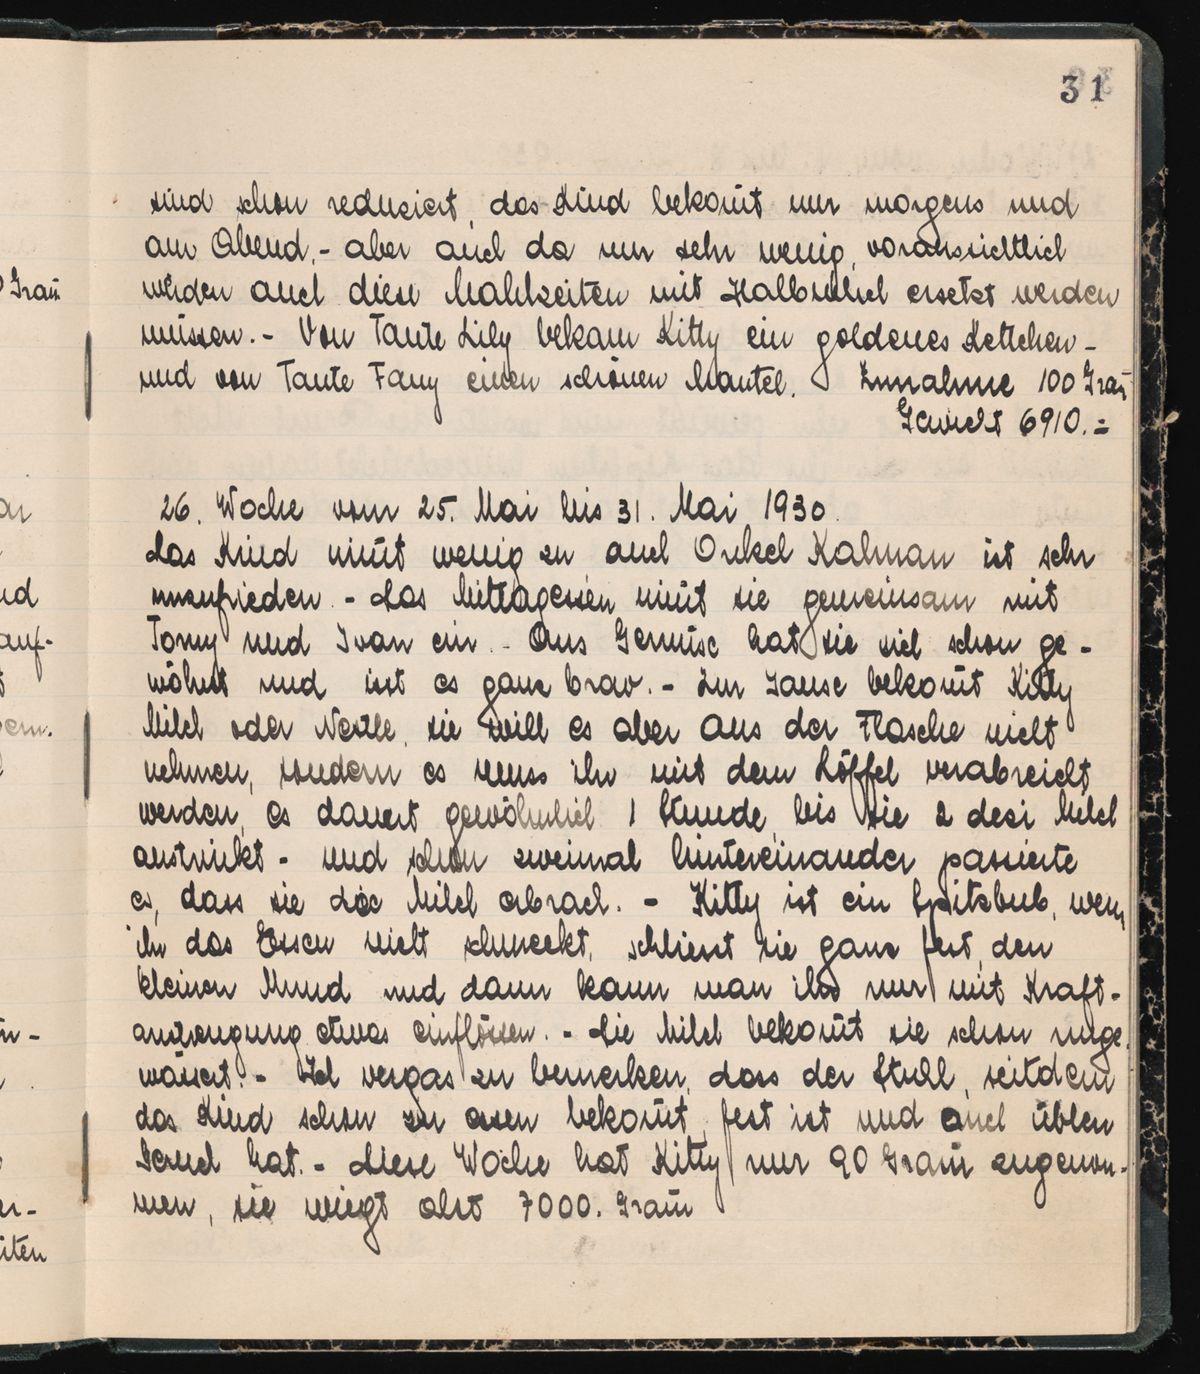 31
sind schon reduziert, das Kind bekom̅t nur morgens und
am Abend, - aber auch da nur sehr wenig, voraussichtlich
werden auch diese Mahlzeiten mit Halbmilch ersetzt werden
müssen. - Von Tante Lily bekam Kitty ein goldenes Kettchen -
und von Tante Fany einen schönen Mantel. Zunahme 100 Gram̅
Gewicht 6910.=
26. Woche vom 25. Mai bis 31. Mai 1930.
Das Kind nim̅t wenig zu auch Onkel Kalman ist sehr
unzufrieden. - Das Mittagessen nim̅t sie gemeinsam mit
Tomy und Ivan ein. - Ans Gemüse hat sie sich schon ge-
wöhnt und isst es ganz brav. - Zur Jause bekom̅t Kitty
Milch oder Nestle, sie will es aber aus der Flasche nicht
nehmen, sondern es muss ihr mit dem Löffel verabreicht
werden, es dauert gewöhnlich 1 Stunde, bis sie 2 dezi Milch
austrinkt - und schon zweimal hintereinander passierte
es, dass sie die Milch erbrach. - Kitty ist ein Spitzbub, wenn
ihr das Essen nicht schmeckt, schliesst sie ganz fest, den
kleinen Mund und dann kann man ihr nur mit Kraft-
anstrengung etwas einflössen. - Die Milch bekom̅t sie schon unge-
wässert. - Ich vergas zu bemerken, dass der Stuhl, seitdem
das Kind schon zu essen bekom̅t, fest ist und auch üblen
Geruch hat. - Diese Woche hat Kitty nur 90 Gram̅ zugenom-
men, sie wiegt also 7000. Gram̅
Gram̅
auf-
iten